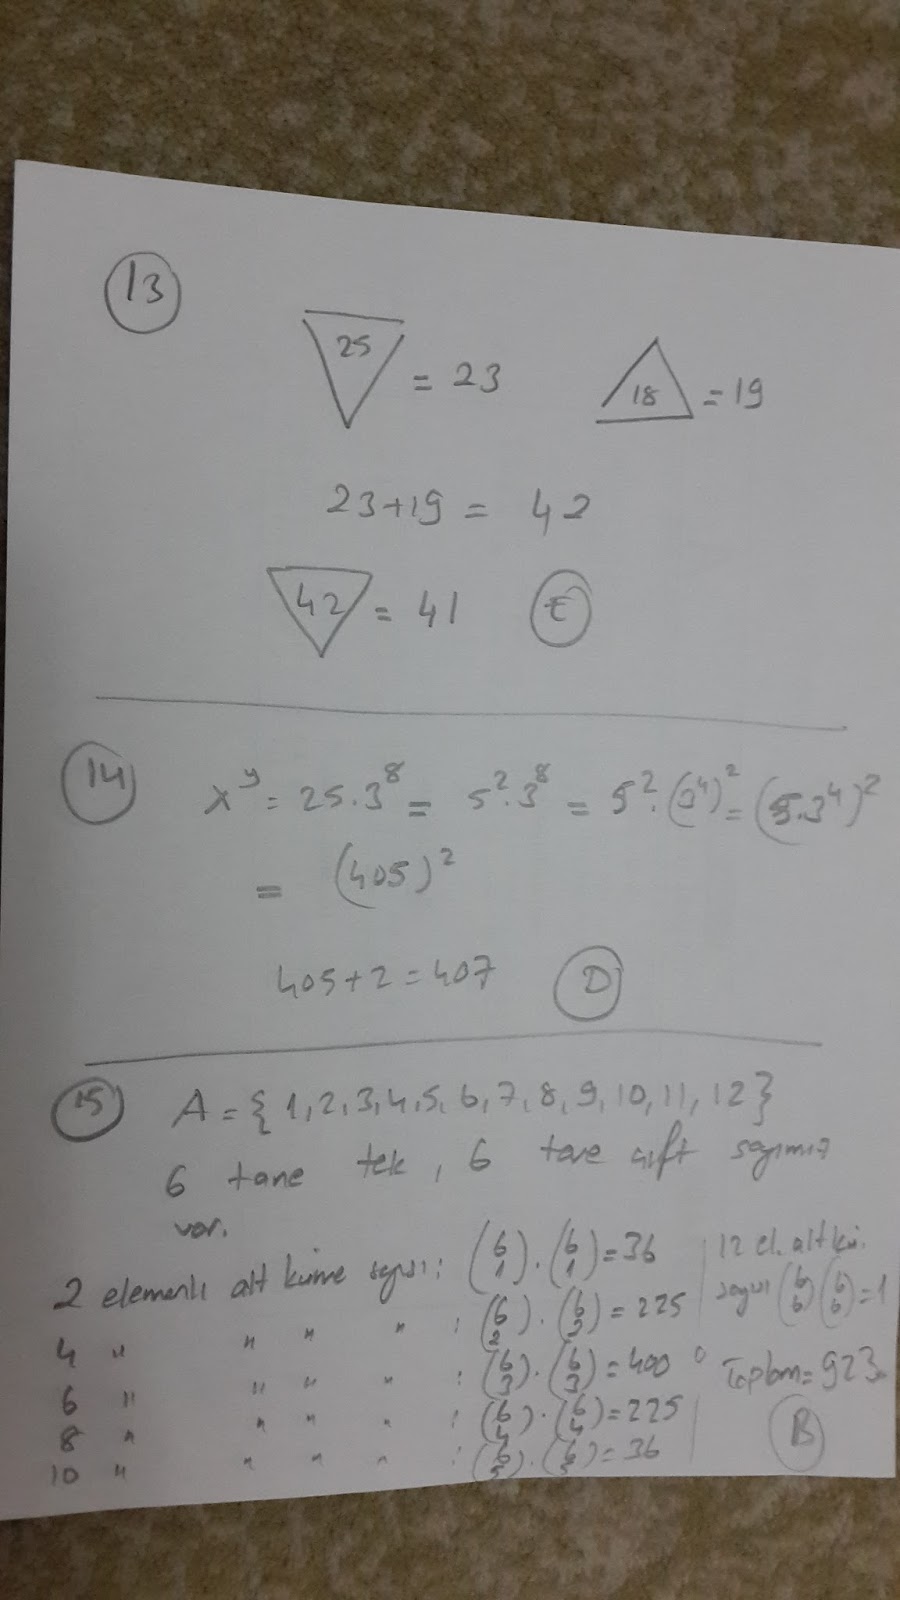 13
25 = 23   18 = 19
23+19 = 42
42 = 41   E
14
x^y = 25.3^8 = 5^2.3^8 = 5^2.(3^4)^2 = (5.3^4)^2
= (405)^2
405+2=407   D
15
A = {1,2,3,4,5,6,7,8,9,10,11,12}
6 tane tek, 6 tane çift sayımız
var.
2 elemanlı alt küme sayısı: (6 1).(6 1)=36
4 " " " " : (6 2).(6 2)=225
6 " " " " : (6 3).(6 3)=400
8 " " " " : (6 4).(6 4)=225
10 " " " " : (6 5).(6 5)=36
12 el. alt kü.
sayısı (6 6)(6 6)=1
Toplam=923
B